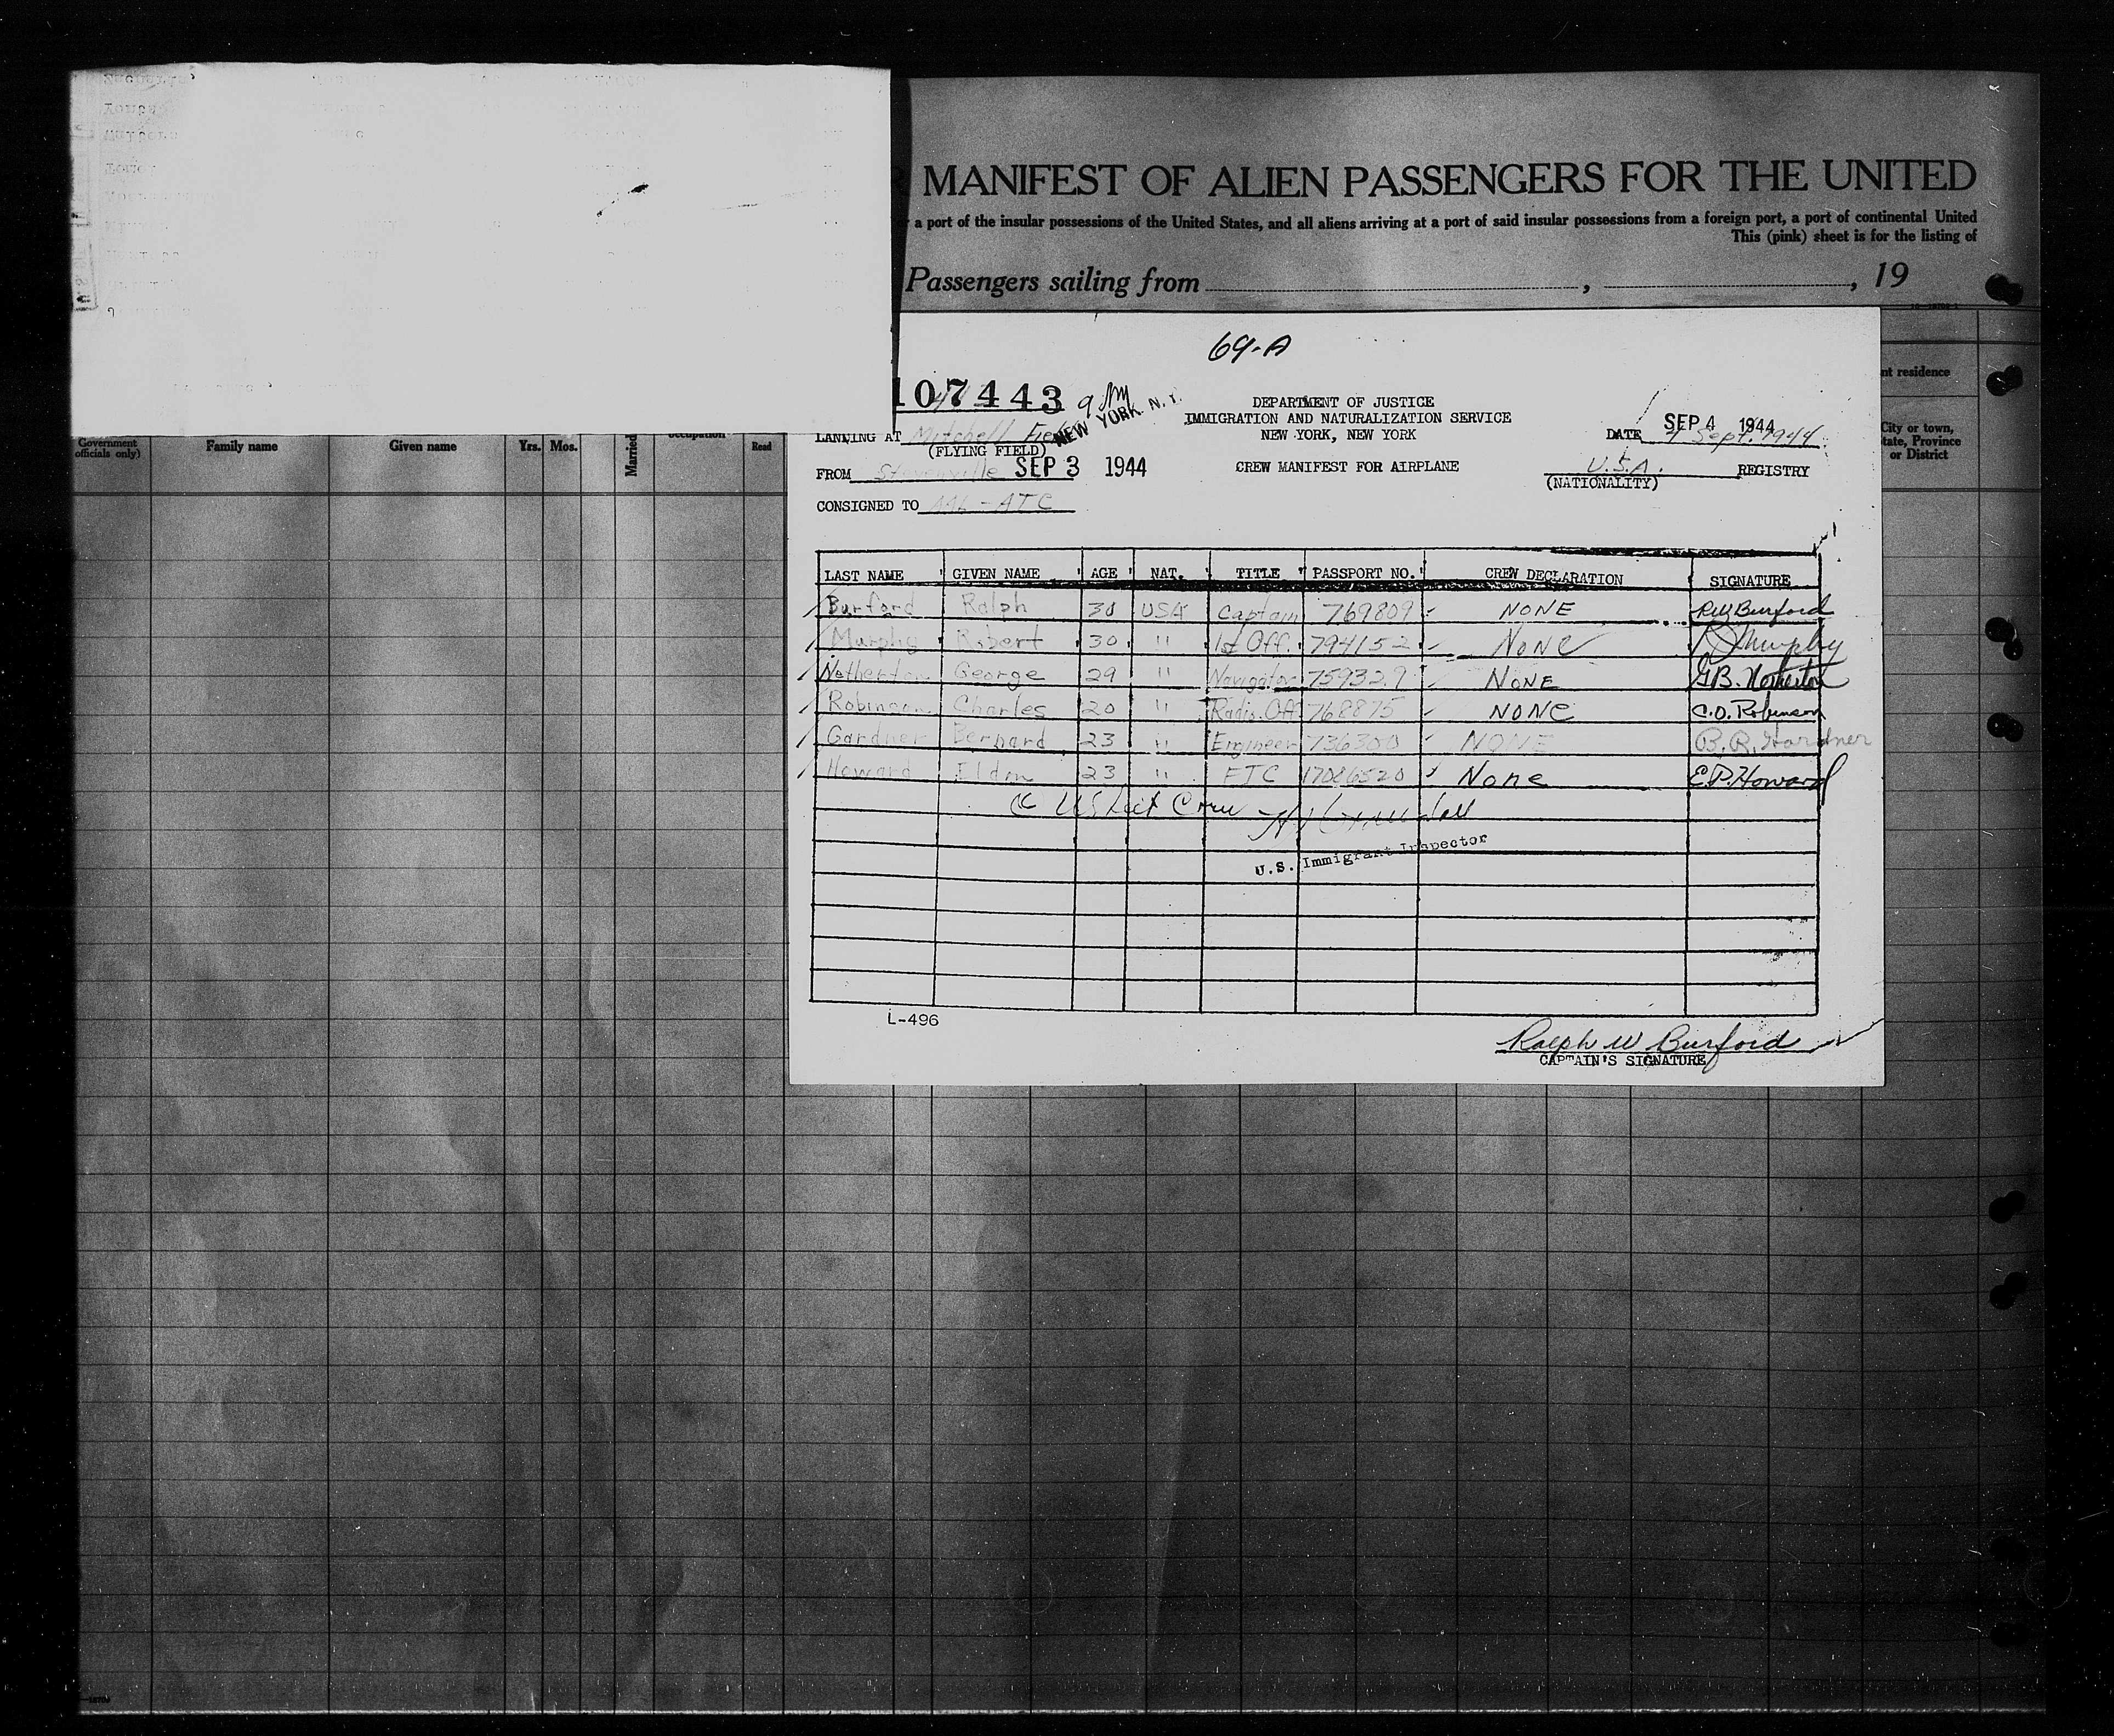 MANIFEST OF ALIEN PASSENGERS FOR THE UNITED
a port of the insular possessions of the United States, and all aliens arriving at a port of said insular possessions from a foreign port, a port of continental United
This (pink) sheet is for the listing of
Passengers sailing from , , 19
69-A
107443 9 AM
NEW YORK, N. Y.
DEPARTMENT OF JUSTICE
IMMIGRATION AND NATURALIZATION SERVICE
NEW YORK, NEW YORK
SEP 4 1944
LANDING AT Mitchell Field
(FLYING FIELD)
DATE 4 Sept. 1944
FROM Stevenville SEP 3 1944
CREW MANIFEST FOR AIRPLANE
U.S.A. REGISTRY
(NATIONALITY)
CONSIGNED TO ATC
LAST NAME GIVEN NAME AGE NAT. TITLE PASSPORT NO. CREW DECLARATION SIGNATURE
Burford Ralph 30 USA Captain 769809 NONE RW Burford
Murphy Robert 30 " 1st Off. 794152 NONE R J Murphy
Netherton George 29 " Navigator 759329 NONE G.B. Netherton
Robinson Charles 20 " Radio Off 768875 NONE C.O. Robinson
Gardner Bernard 23 " Engineer 736300 NONE B. R. Gardner
Howard Eldon 23 " FTC 17086520 None E.P. Howard
Crew
U.S. Immigrant Inspector
L-496
Ralph W Burford
CAPTAIN'S SIGNATURE
Government officials only)
Family name
Given name
Yrs. Mos.
Married
occupation
Read
nt residence
City or town,
tate, Province
or District